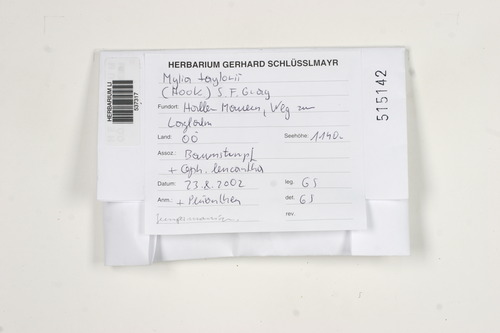 HERBARIUM GERHARD SCHLÜSSLMAYR
Mylia taylorii
(Hook.) S.F. Gray
Fundort: Haller Mauern, Weg zur
Land: OÖ Seehöhe: 1140.-
Assoz.: Baumstumpf
+ Ceph. leucantha
Datum: 23.8.2002 leg. GS
Anm.: det. GS
rev.
HERBARIUM LI
537317
515142